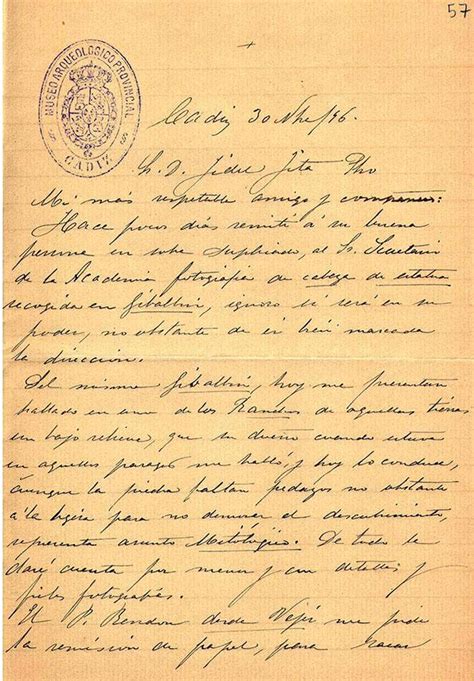 57
MUSEO ARQUEOLÓGICO PROVINCIAL
CADIZ
Cadiz 30 Nbre/96.
Sr. D. Fidel Fita Pbro
Mi más respetable amigo y compañero:
Hace pocos dias remití á su buena
persona en sobre duplicado, al Sr. Secretario
de la Academia fotografia de cabeza de estatua
recogida en Gibalbin, ignoro si será en su
poder, no obstante de ir bien marcada
la dirección.
Del mismo Gibalbin, hoy me presentan
hallado en uno de los Ranchos de aquellas tierras
un bajo relieve, que su dueño cuando estuve
en aquellos parages me habló, y hoy lo conduce,
aunque la piedra faltan pedazos no obstante
á la ligera para no demorar el descubrimiento,
representa asunto Mitológico. De todo le
daré cuenta por menor y con detalles y
fieles fotografías.
El P. Rendon desde Vejér me pide
la remisión de papel, para sacar